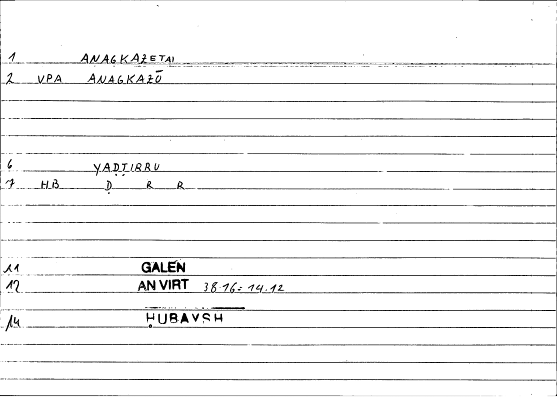 1 ANAGKAZETAI
2 VPA ANAGKAZŌ
6 YAḌṬIRRU
7 HB Ḍ R R
11 GALEN
12 AN VIRT 38.16 = 14.12
14 ḤUBAVSH